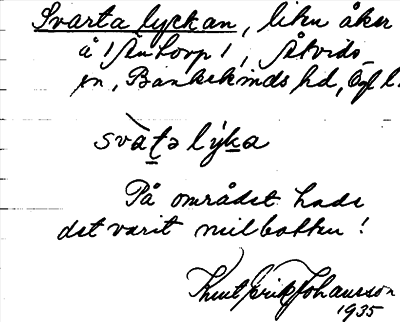 Svarta lyckan, liten åker
å / Åntorp /, Åtvids-
sn, Bankekinds hd, Ögl.
svàt̠ə lýk̠a
På området hade
det varit milbotten!
Knut Erik Johansson
1935